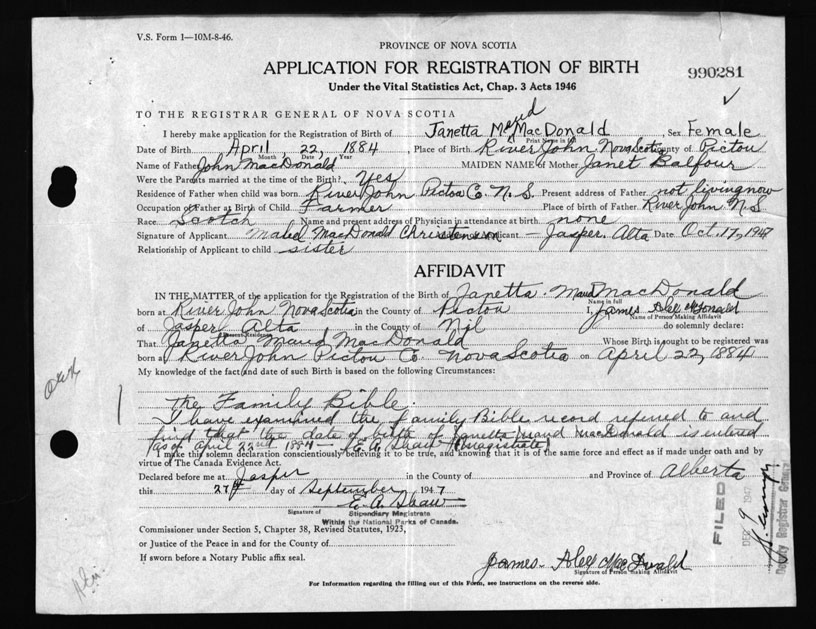 V.S. Form 1—10M-8-46.
PROVINCE OF NOVA SCOTIA
APPLICATION FOR REGISTRATION OF BIRTH
990281
Under the Vital Statistics Act, Chap. 3 Acts 1946
TO THE REGISTRAR GENERAL OF NOVA SCOTIA
I hereby make application for the Registration of Birth of Janetta Maud MacDonald, Sex Female
Print Name in full
Date of Birth April 22, 1884, Place of Birth River John Nova Scotia County of Pictou
Month Date Year
Name of Father John MacDonald MAIDEN NAME of Mother Janet Balfour
Were the Parents married at the time of the Birth? Yes
Residence of Father when child was born River John Pictou Co. N.S. Present address of Father not living now
Occupation of Father at Birth of Child Farmer Place of birth of Father River John N.S
Race Scotch Name and present address of Physician in attendance at birth none
Signature of Applicant Mabel MacDonald Christensen Applicant - Jasper. Alta Date Oct. 17, 1947
Relationship of Applicant to child sister
AFFIDAVIT
IN THE MATTER of the application for the Registration of the Birth of Janetta Maud MacDonald
Name in full
born at River John Nova Scotia in the County of Pictou I, James Alex McDonald
Name of Person Making Affidavit
of Jasper Alta in the County of Nil do solemnly declare:
Present Residence
That Janetta Maud MacDonald Whose Birth is sought to be registered was
born at River John Pictou Co. Nova Scotia on April 22, 1884
My knowledge of the fact and date of such Birth is based on the following Circumstances:
the Family Bible.
I have examined the family Bible record referred to and
find that the date of birth of Janetta Maud MacDonald is entered
as of April 22nd 1884 - E. A. Shaw (Magistrate)
I make this solemn declaration conscientiously believing it to be true, and knowing that it is of the same force and effect as if made under oath and by
virtue of The Canada Evidence Act.
Declared before me at Jasper in the County of and Province of Alberta
this 27th day of September 1947
E. A. Shaw
Signature of Stipendiary Magistrate
Within the National Parks of Canada.
Commissioner under Section 5, Chapter 38, Revised Statutes, 1923,
or Justice of the Peace in and for the County of
If sworn before a Notary Public affix seal.
James Alex MacDonald
Signature of Person making Affidavit
For Information regarding the filling out of this Form, see instructions on the reverse side.
FILED
DEC 9 1947
Deputy Registrar General